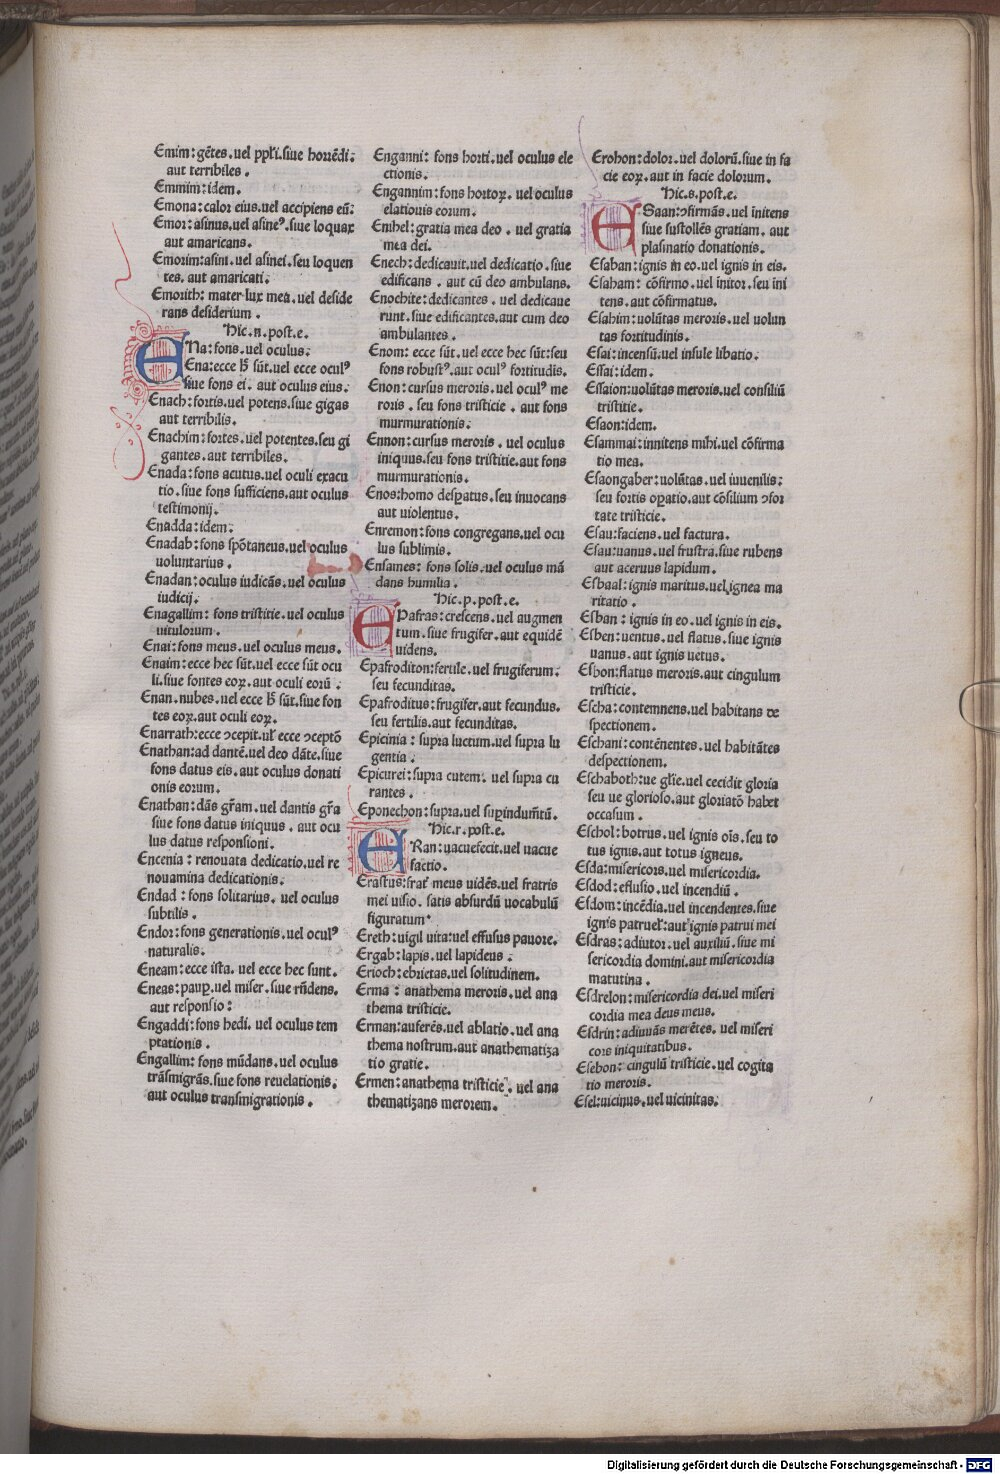 Emim: gẽtes. uel ppl̃i. siue horrẽdi:
aut terribiles.
Emmim: idem.
Emona: calor eius. uel accipiens eũ:
Emor: asinus. uel asineꝰ. siue loquax
aut amaricans.
Emorim: asini. uel asinei. seu loquen
tes. aut amaricati.
Emorith: mater lux mea. uel deside
rans desiderium.
Hic. n. post. e.
ENa: fons. uel oculus:
Ena: ecce h̃ sũt. uel ecce oculꝰ
siue fons ei. aut oculus eius.
Enach: fortis. uel potens. siue gigas
aut terribilis.
Enachim: fortes. uel potentes. seu gi
gantes. aut terribiles.
Enada: fons acutus. uel oculi exacu
tio. siue fons sufficiens. aut oculus
testimonij.
Enadda: idem:
Enadab: fons spõtaneus. uel oculus
uoluntarius.
Enadan: oculus iudicãs. uel oculus
iudicij.
Enagallim: fons tristitie. uel oculus
uitulorum.
Enai: fons meus. uel oculus meus.
Enaim: ecce hec sũt. uel ecce sũt ocu
li. siue fontes eoꝝ. aut oculi eorũ:
Enan. nubes. uel ecce h̃ sũt. siue fon
tes eoꝝ. aut oculi eoꝝ.
Enarrath: ecce ↄcepit. ul̃ ecce ↄceptõ
Enathan: ad dantẽ. uel deo dãte. siue
fons datus eis. aut oculus donati
onis eorum.
Enathan: dãs gr̃am. uel dantis gr̃a
siue fons datus iniquus. aut ocu
lus datus responsioni.
Encenia: renouata dedicatio. uel re
nouamina dedicationis:
Endad: fons solitarius. uel oculus
subtilis.
Endor: fons generationis. uel oculꝰ
naturalis.
Eneam: ecce ista. uel ecce hec sunt.
Eneas: paup̱. uel miser. siue rñdens.
aut responsio:
Engaddi: fons hedi. uel oculus tem
ptationis.
Engallim: fons mũdans. uel oculus
trãsmigrãs. siue fons reuelationis.
aut oculus transmigrationis.
Enganni: fons horti. uel oculus ele
ctionis.
Engannim: fons hortoꝝ. uel oculus
elationis eorum.
Enihel: gratia mea deo. uel gratia
mea dei.
Enech: dedicauit. uel dedicatio. siue
edificans. aut cũ deo ambulans.
Enochite: dedicantes. uel dedicaue
runt. siue edificantes. aut cum deo
ambulantes.
Enom: ecce sũt. uel ecce hec sũt: seu
fons robustꝰ. aut oculꝰ fortitudis.
Enon: cursus meroris. uel oculꝰ me
roris. seu fons tristicie. aut fons
murmurationis:
Ennon: cursus meroris. uel oculus
iniquus. seu fons tristitie. aut fons
murmurationis.
Enos: homo desp̱atus. seu inuocans
aut uiolentus.
Enremon: fons congregans. uel ocu
lus sublimis.
Ensames: fons solis. uel oculus mã
dans humilia.
Hic. p. post. e.
EPafras: crescens. uel augmen
tum. siue frugifer. aut equidẽ
uidens.
Epafroditon: fertile. uel frugiferum.
seu fecunditas.
Epafroditus: frugifer. aut fecundus.
seu fertilis. aut fecunditas.
Epicinia: supra luctum. uel supra lu
gentia.
Epicurei: supra cutem. uel supra cu
rantes.
Eponechon: supra. uel sup̱indum̃tũ.
Hic. r. post. e.
ERan: uacuefecit. uel uacue
factio.
Erastus: frat̃ meus uidẽs. uel fratris
mei uisio. satis absurdũ uocabulũ
figuratum
Ereth: uigil uita: uel effusus pauore.
Ergab: lapis. uel lapideus:
Erioch: ebrietas. uel solitudinem.
Erma: anathema meroris. uel ana
thema tristicie.
Erman: auferẽs. uel ablatio. uel ana
thema nostrum. aut anathematiza
tio gratie.
Ermen: anathema tristicie. uel ana
thematizans merorem.
Erohon: dolor. uel dolorũ. siue in fa
cie eoꝝ. aut in facie dolorum.
Hic. s. post. e.
ESaan: ↄfirmãs. uel initens
siue sustollẽs gratiam. aut
plasinatio donationis.
Esaban: ignis in eo. uel ignis in eis.
Esaham: cõfirmo. uel initor. seu ini
tens. aut cõfirmatus.
Esahim: uolũtas meroris. uel uolun
tas fortitudinis.
Esai: incensũ. uel insule libatio.
Essai: idem.
Essaion: uolũtas meroris. uel consiliũ
tristitie.
Esaon: idem.
Esammai: innitens mihi. uel cõfirma
tio mea.
Esaongaber: uolũtas. uel iuuenilis:
seu fortis op̱atio. aut cõsilium ↄfor
tate tristicie.
Esau: faciens. uel factura.
Esau: uanus. uel frustra. siue rubens
aut aceruus lapidum.
Esbaal: ignis maritus. uel ignea ma
ritatio.
Esban: ignis in eo. uel ignis in eis.
Esben: uentus. uel flatus. siue ignis
uanus. aut ignis uetus.
Esbon: flatus meroris. aut cingulum
tristicie.
Escha: contemnens. uel habitans de
spectionem.
Eschani: contẽnentes. uel habitãtes
despectionem.
Eschaboth: ue gl̃ie. uel cecidit gloria
seu ue glorioso. aut gloriatõ habet
occasum.
Eschol: botrus. uel ignis oĩs. seu to
tus ignis. aut totus igneus.
Esda: misericors. uel misericordia.
Esdod: effusio. uel incendiũ.
Esdom: incẽdia. uel incendentes. siue
ignis patruel̃: aut ignis patrui mei
Esdras: adiutor. uel auxiliũ. siue mi
sericordia domini. aut misericordia
matutina.
Esdrelon: misericordia dei. uel miseri
cordia mea deus meus.
Esdrin: adiuuãs merẽtes. uel miseri
cors iniquitatibus.
Esebon: cingulũ tristicie. uel cogita
tio meroris.
Esel: uicinus. uel uicinitas:
Digitalisierung gefördert durch die Deutsche Forschungsgemeinschaft - DFG